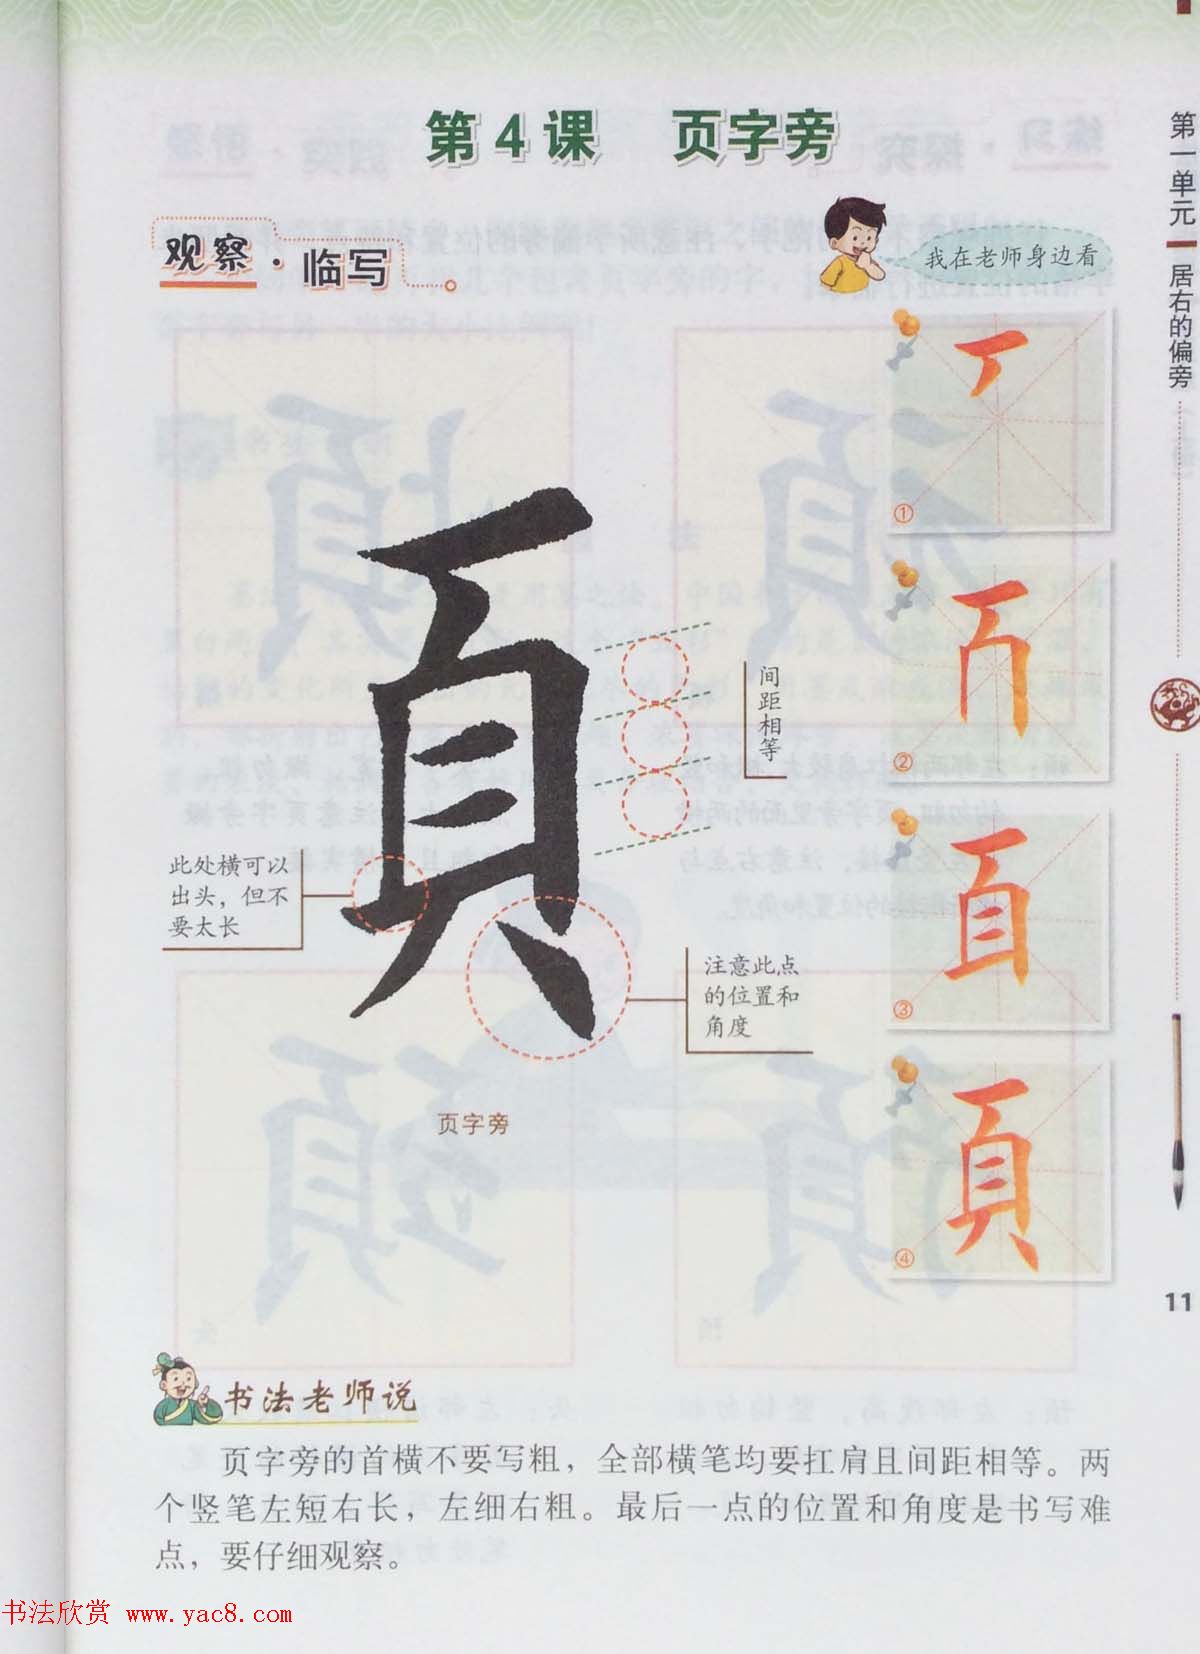 第4课 页字旁
观察·临写
我在老师身边看
①
②
③
④
頁
间距相等
此处横可以
出头，但不
要太长
注意此点
的位置和
角度
页字旁
第一单元
居右的偏旁
11
书法老师说
页字旁的首横不要写粗，全部横笔均要扛肩且间距相等。两
个竖笔左短右长，左细右粗。最后一点的位置和角度是书写难
点，要仔细观察。
书法欣赏 www.yac8.com